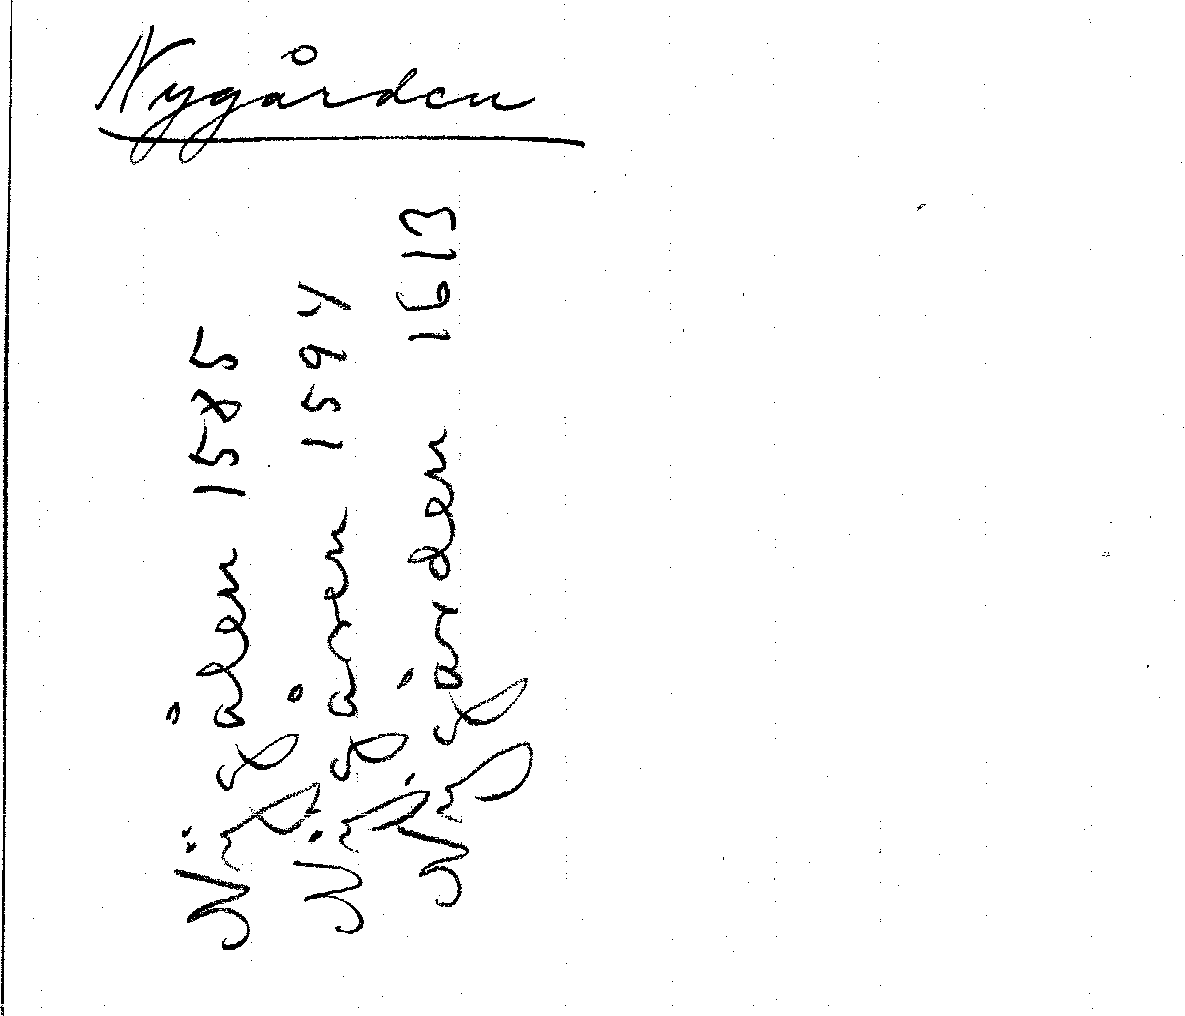 Nygården
Nÿgålen 1585
Nÿgåren 1594
Nẏgården 1613